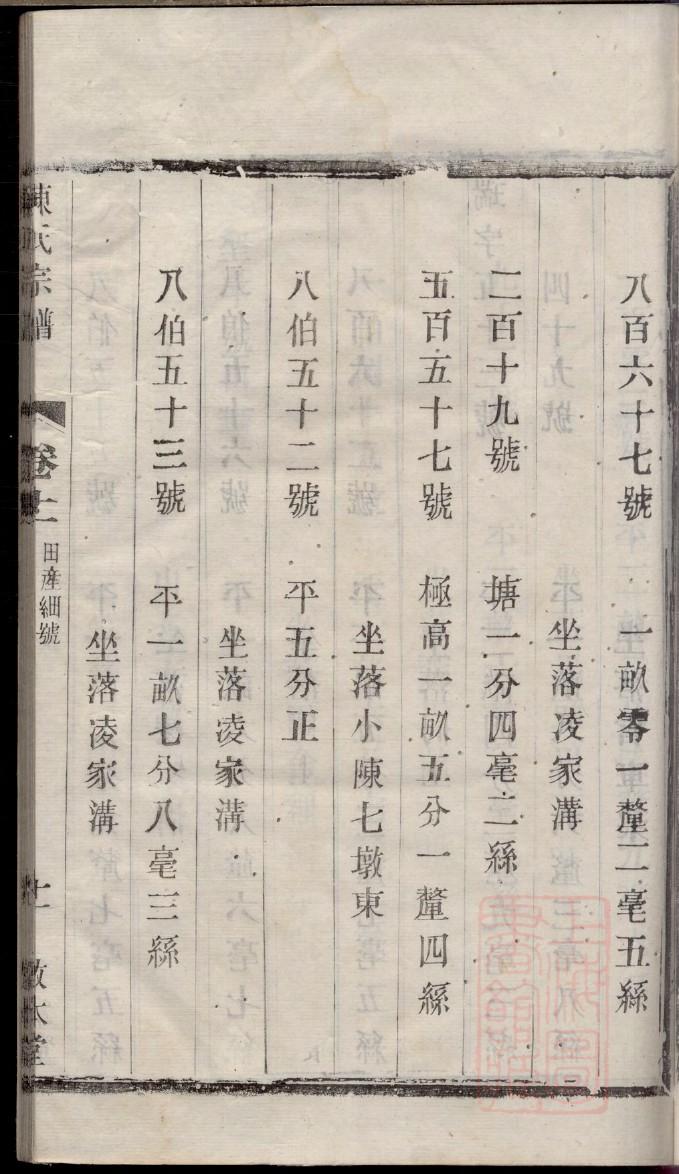 八百六十七號　一畝零一釐二毫五絲
坐落凌家溝
二百十九號　塘一分四毫二絲
五百五十七號　極高一畝五分一釐四絲
坐落小陳七墩東
八伯五十二號　平五分正
坐落凌家溝
八伯五十三號　平一畝七分八毫三絲
坐落凌家溝
陳氏宗譜　卷十一　田產細號　十一　敦本堂